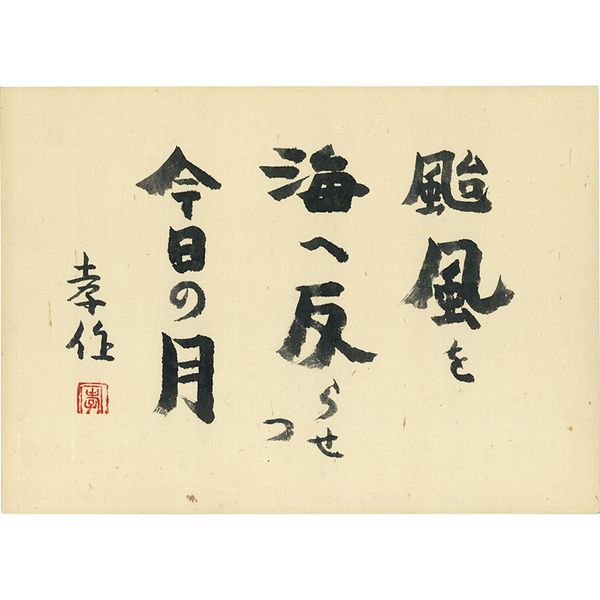 颱風を
海へ反らせつ
今日の月
孝作
孝